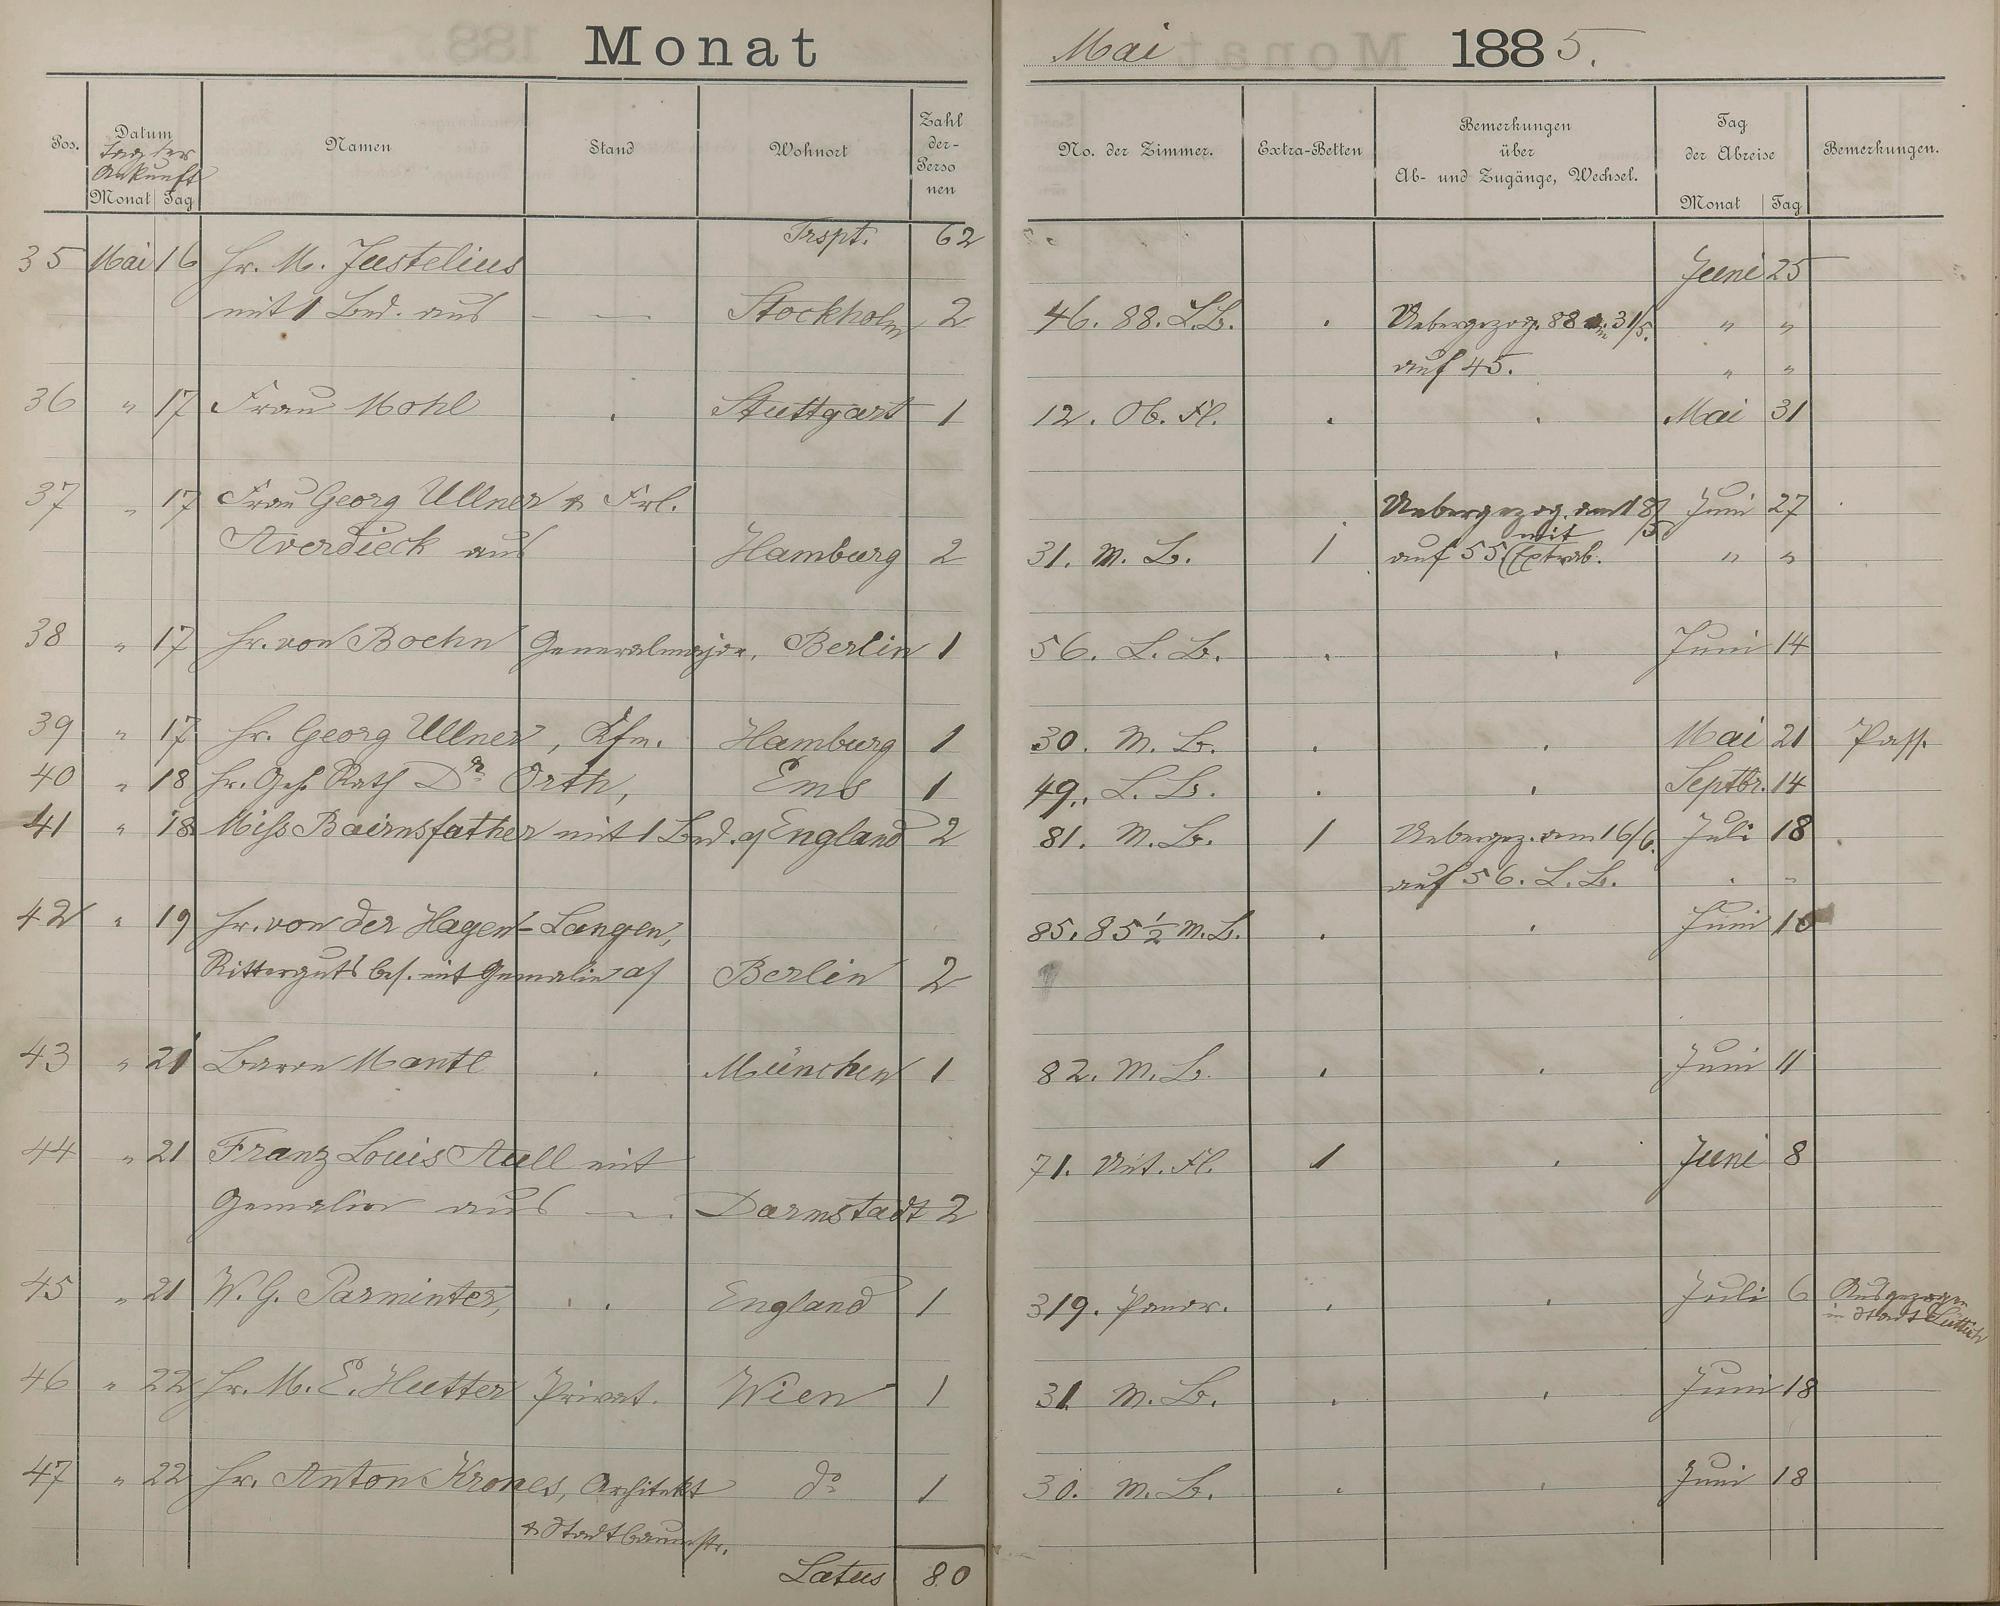 Monat Mai 1885.
Pos. Datum Namen Stand Wohnort Zahl der Personen No. der Zimmer. Extra-Betten Bemerkungen über Ab- und Zugänge, Wechsel. Tag der Abreise Bemerkungen.
Tag der Ankunft
Monat Tag Monat Tag
Trspt. 62
35 Mai 16 Hr. M. Justelius Juni 25
mit 1 Bed. aus — — Stockholm 2 46. 88. L.B. . Uebergezog. 88 am 31/5. " "
auf 45. " "
36 " 17 Frau Mohl . Stuttgart 1 12. Ob. Fl. . . Mai 31
37 " 17 Frau Georg Ullner & Frl. Uebergezog. am 18/5 Juni 27
Averdieck aus Hamburg 2 31. M. B. 1 auf 55 (mit Extrab. " "
38 " 17 Hr. von Boehn Generalmajor, Berlin 1 56. L. B. . . Juni 14
39 " 17 Hr. Georg Ullner, Kfm. Hamburg 1 30. M. B. . . Mai 21 Pass.
40 " 18 Hr. Geh. Rath Dr Orth, Ems 1 49. L. B. . . Septbr. 14
41 " 18 Miss Bairnsfather mit 1 Bed. a/ England 2 81. M. B. 1 Uebergez. am 16/6. Juli 18
auf 56. L. B. . "
42 " 19 Hr. von der Hagen-Langen, 85. 85 1/2 M. B. . . Juni 10
Ritterguts bes. mit Gemalin a/ Berlin 2
43 " 21 Baron Mantl . München 1 82. M. B. . . Juni 11
44 " 21 Franz Louis Aull mit 71. Unt. Fl. 1 . Juni 8
Gemalin aus — Darmstadt 2
45 " 21 W. G. Parminter, . . England 1 319. Panor. . . Juli 6 Ausgezogen
in Stadt Lüttich
46 " 22 Hr. M. E. Hutter Privat. Wien 1 31 M. B. . . Juni 18
47 " 22 Hr. Anton Krones, Architekt do 1 30. M. B. . . Juni 18
& Stadtbaumstr.
Latus 80